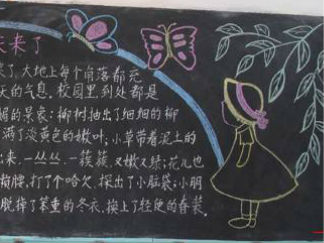 天来了
来了,大地上每个角落都充
天的气息。校园里到处都是
媚的景象:柳树抽出了细细的柳
满了淡黄色的嫩叶;小草带着泥土的
出来,一丛丛,一簇簇,又嫩又绿;花儿也
懒腰,打了个哈欠,探出了小脑袋;小朋
脱掉了笨重的冬衣,换上了轻便的春装。